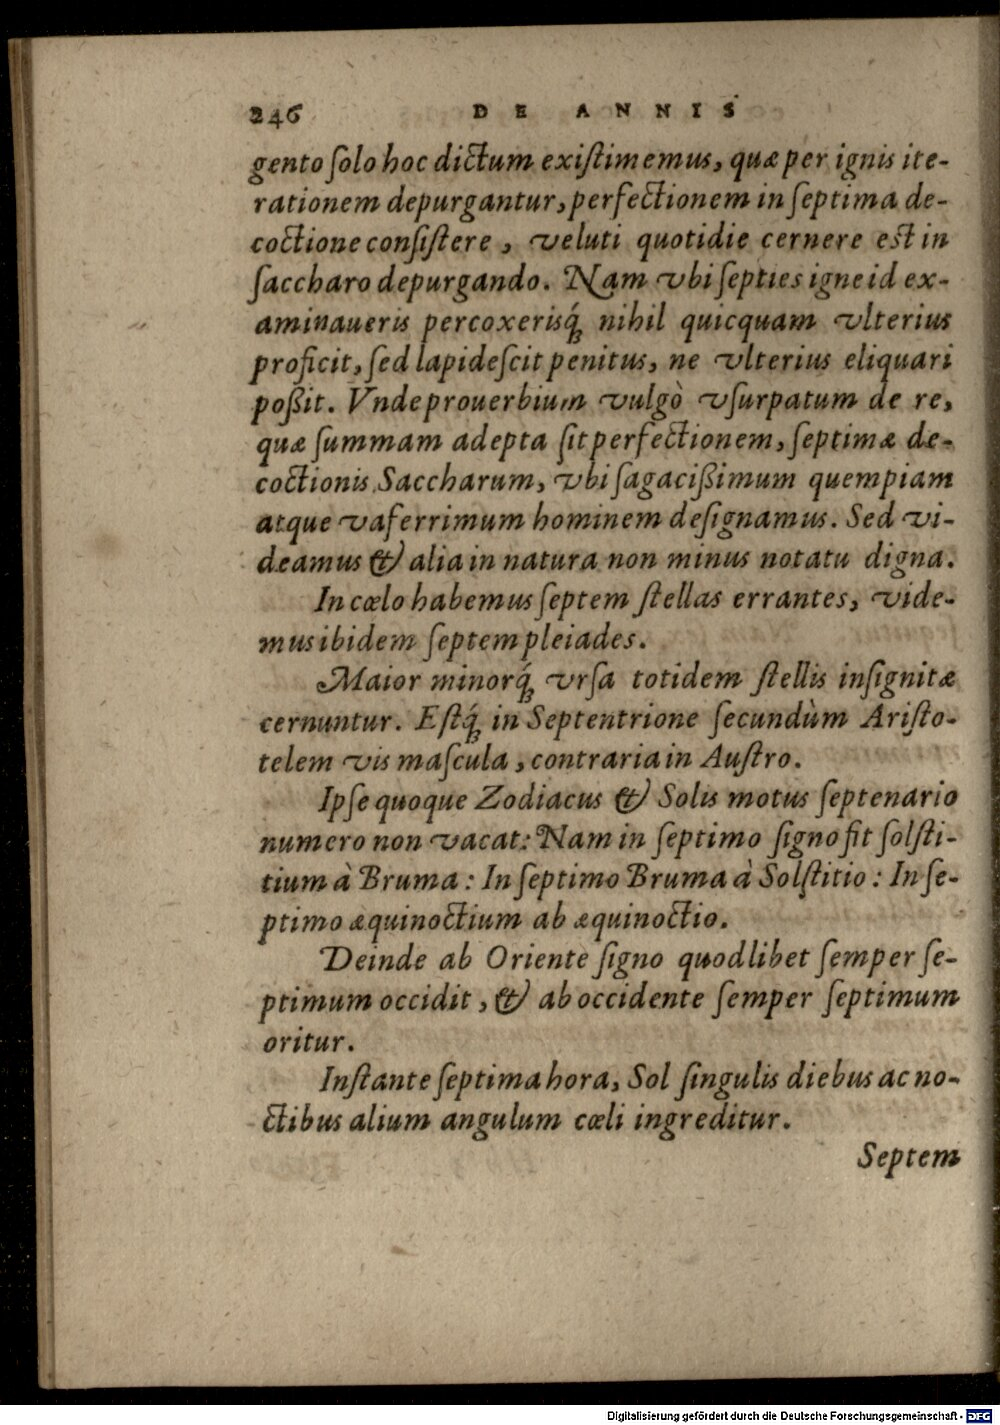 246 DE ANNIS
gento ſolo hoc dictum exiſtimemus, quæ per ignis ite-
rationem depurgantur, perfectionem in ſeptima de-
coctione conſiſtere, veluti quotidie cernere est in
ſaccharo depurgando. Nam vbi ſepties igne id ex-
aminaueris percoxerisq́ꝫ nihil quicquam vlterius
proficit, ſed lapideſcit penitus, ne vlterius eliquari
poßit. Vnde prouerbium vulgò vſurpatum de re,
quæ ſummam adepta ſit perfectionem, ſeptimæ de-
coctionis Saccharum, vbi ſagacißimum quempiam
atque vaferrimum hominem deſignamus. Sed vi-
deamus & alia in natura non minus notatu digna.
In cœlo habemus ſeptem ſtellas errantes, vide-
mus ibidem ſeptem pleiades.
Maior minorq́ꝫ vrſa totidem ſtellis inſignitæ
cernuntur. Eſtq́ꝫ in Septentrione ſecundùm Ariſto-
telem vis maſcula, contraria in Auſtro.
Ipſe quoque Zodiacus & Solis motus ſeptenario
numero non vacat: Nam in ſeptimo ſigno fit ſolſti-
tium à Bruma: In ſeptimo Bruma à Solſtitio: In ſe-
ptimo æquinoctium ab æquinoctio.
Deinde ab Oriente ſigno quodlibet ſemper ſe-
ptimum occidit, & ab occidente ſemper ſeptimum
oritur.
Inſtante ſeptima hora, Sol ſingulis diebus ac no-
ctibus alium angulum cœli ingreditur.
Septem
Digitalisierung gefördert durch die Deutsche Forschungsgemeinschaft - DFG